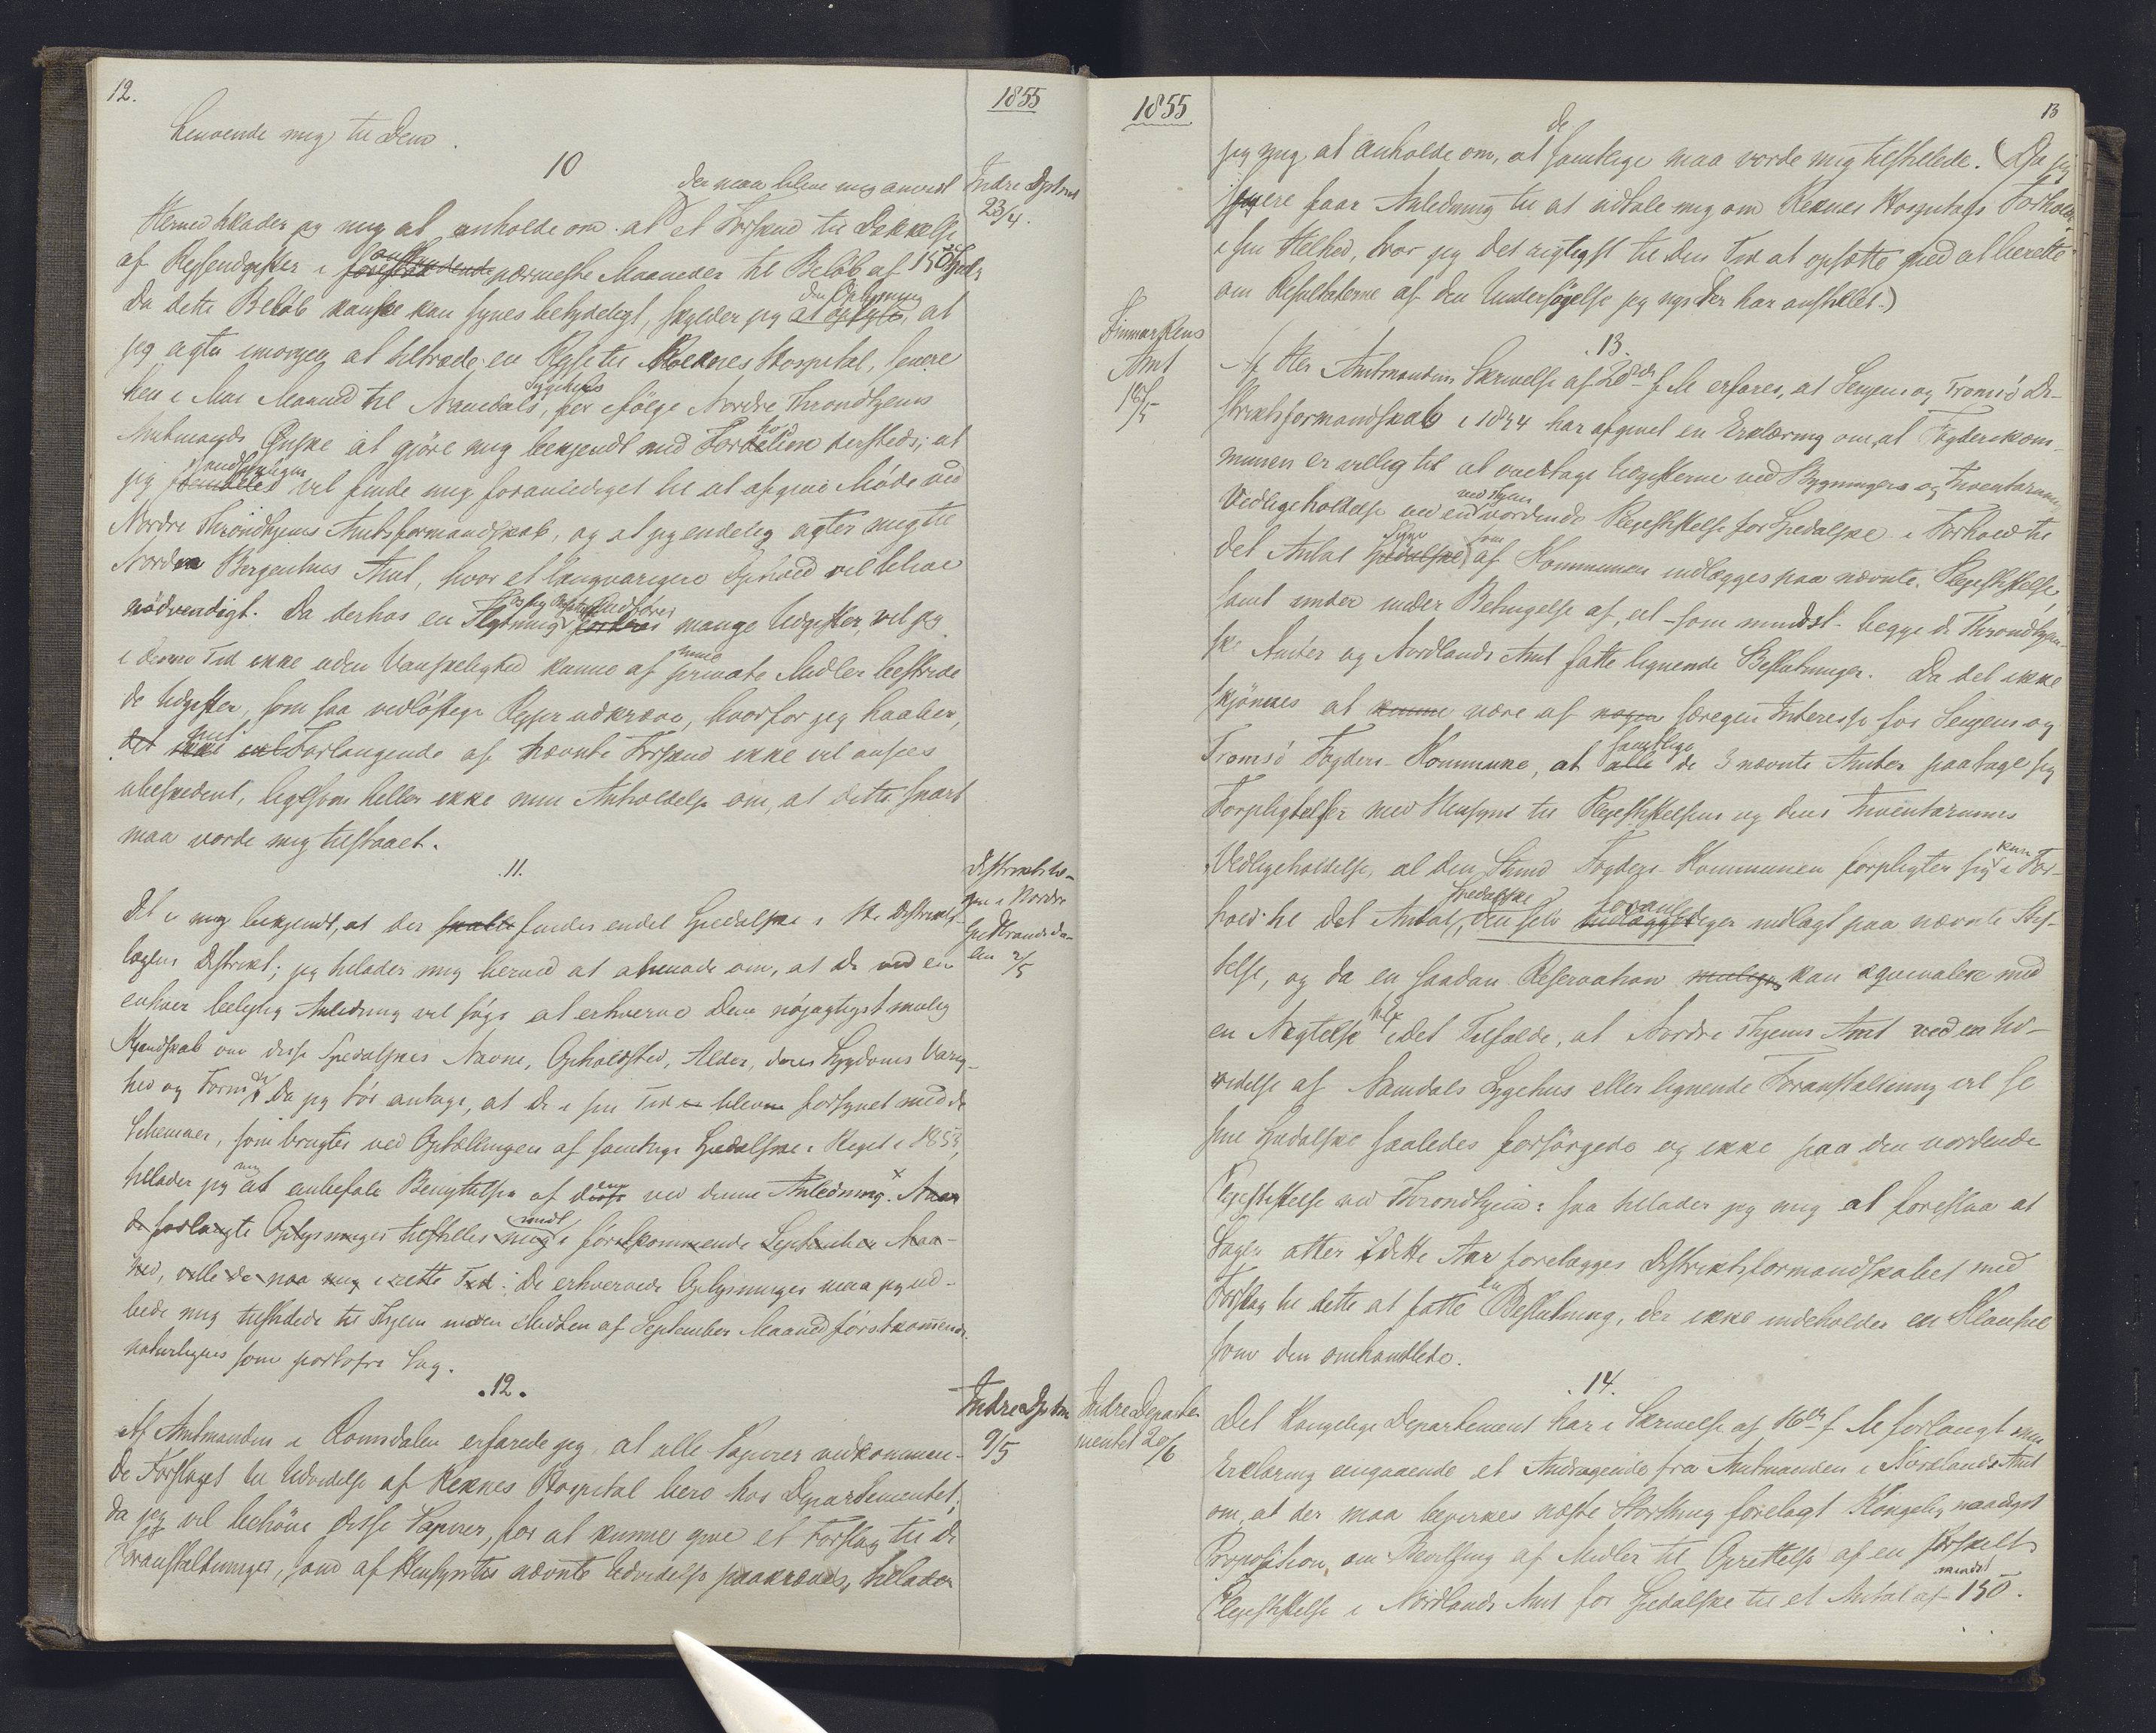 12.
1855
henvende mig til Dem.
10
der maa blive mig anvist
Indre Dptmt
23/4.
Herved tillader jeg mig at anholde om at et Forskud til Dækkelse
af Rejseudgifter i forestaaende nærmeste Maaneder til Beløb af 150 Spdlr
Da dette Beløb kanske kan synes betydeligt, skylder jeg at oplyse, at
den Oplysning
jeg agter imorgen at tiltræde en Rejse til Reknes Hospital, senere
hen i Mai Maaned til Namdals Sygehus, for ifølge Nordre Throndhjems
Amtmands Ønske at gjøre mig bekjendt med Forholdene dersteds; at
jeg sandsynligvis vil finde mig foranlediget til at afgive Møde ved
Nordre Throndhjems Amtsformandskab, og at jeg endelig agter mig til
Nordre Bergenhus Amt, hvor et langvarigere Ophold vil blive
nødvendigt. Da derhos en Flytning medfører mange Udgifter, vil jeg
i denne Tid ikke uden Vanskelighed kunne af mine private Midler bestride
de Udgifter, som saa vedløftige Rejser udkræve, hvorfor jeg haaber,
at mit Forlangende af nævnte Forskud ikke vil ansees
ubeskedent, ligesom heller ikke min Anholdelse om, at dette snart
maa vorde mig tilstaaet.
.11.
Distriktslæ-
gen i Nordre
Gudbrandsda-
len 2/5
Det er mig bekjendt, at der skulle findes endel Spedalske i Hr. Distrikts-
lægens Distrikt; jeg tillader mig herved at anmode om, at De ved en
enhver belejlig Anledning vil søge at erhverve Dem nøjagtigst mulig
Kjendskab om disse Spedalskes Navne, Opholdssted, Alder, deres Sygdoms Varig-
hed og Form. Da jeg tør antage, at De i sin Tid er bleven forsynet med de
Schemaer, som brugtes ved Optællingen af samtlige Spedalske i Riget i 1853,
tillader jeg mig at anbefale Benyttelsen af disse ved denne Anledning. Naar
de forlangte Oplysninger tilstilles mig inden førstkommende September Maa-
ned, ville de naa mig i rette Tid. De erhvervede Oplysninger maa jeg ud-
bede mig tilstillede til Thjem inden Midten af September Maaned førstkommende
naturligvis som portofri Sag.
.12.
Indre Dptm
9/5
Af Amtmanden i Romsdalen erfarede jeg, at alle Papirer vedkommen-
de Forslaget til Udvidelse af Reknes Hospital bero hos Departementet;
da jeg vil behøve disse Papirer, for at kunne give et Forslag til de
Foranstaltninger, som af Hensyn til nævnte Udvidelse paakræves, tillader
1855
13
jeg mig at anholde om, at de samtlige maa vorde mig tilstillede. (Da jeg
senere faar Anledning til at udtale mig om Reknes Hospitals Forholde
i sin Helhed, tror jeg det rigtigst til den Tid at opsætte med at berette
om Resultaterne af den Undersøgelse jeg nys der har anstillet.)
Finmarkens
Amt
18/5
.13.
Af Her Amtmandens Skrivelse af 20de f. M. erfares, at Senjens og Tromsø Di-
striktsformandskab i 1854 har afgivet en Erklæring om, at Fogderikom-
munen er villig til at overtage Udgifterne ved Bygningers og Inventariums
Vedligeholdelse ved en ved Thjem vordende Plejestiftelse for Spedalske i Forhold til
det Antal Syge som af Kommunen indlægges paa nævnte Plejestiftelse,
samt under Betingelse af, at – som mindst – begge de Throndhjem-
ske Amter og Nordlands Amt fatte lignende Beslutninger. Da det ikke
skjønnes at kunne være af nogen særegen Interesse for Senjens og
Tromsø Fogderi-Kommune, at samtlige de 3 nævnte Amter paatage sig
Forpligtelser med Hensyn til Plejestiftelsens og dens Inventariums
Vedligeholdelse, al den Stund Fogderi-Kommunen forpligter sig kun i For-
hold til det Antal Spedalske, den selv foranlediger indlagt paa nævnte Stif-
telse, og da en saadan Reservation muligens kan æqvivalere med
en Nægtelse i det Tilfælde, at Nordre Thjems Amt ved en Ud-
videlse af Namdals Sygehus eller lignende Foranstaltning vil se
sine Spedalske saaledes forsørgede og ikke paa den vordende
Plejestiftelse ved Throndhjem: saa tillader jeg mig at foreslaa at
Sagen atter i dette Aar forelægges Distriktsformandskabet med
Forslag til dette at fatte en Beslutning, der ikke indeholder en Klausul
som den omhandlede.
.14.
Indre Departe-
mentet 20/6
Det Kongelige Departement har i Skrivelse af 16de f. M. forlangt min
Erklæring angaaende et Andragende fra Amtmanden i Nordlands Amt
om, at der maa bevirkes næste Storthing forelagt Kongelig naadigst
Proposition om Bevilgning af Midler til Oprettelse af en særskilt
Plejestiftelse i Nordlands Amt for Spedalske til et Antal af mindst 150.